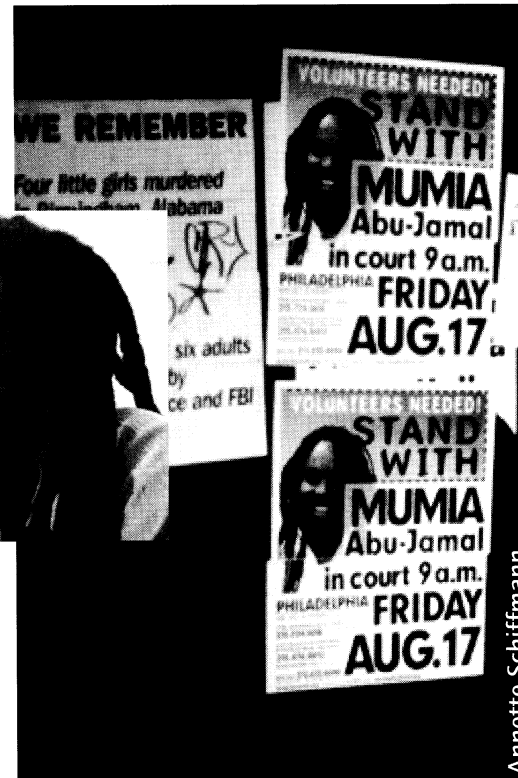 WE REMEMBER
Four little girls murdered
in Birmingham, Alabama
six adults
by
ce and FBI
VOLUNTEERS NEEDED!
STAND
WITH
MUMIA
Abu-Jamal
in court 9 a.m.
PHILADELPHIA
FRIDAY,
AUG.17
VOLUNTEERS NEEDED!
STAND
WITH
MUMIA
Abu-Jamal
in court 9 a.m.
PHILADELPHIA
FRIDAY
AUG.17
Annette Schiffmann